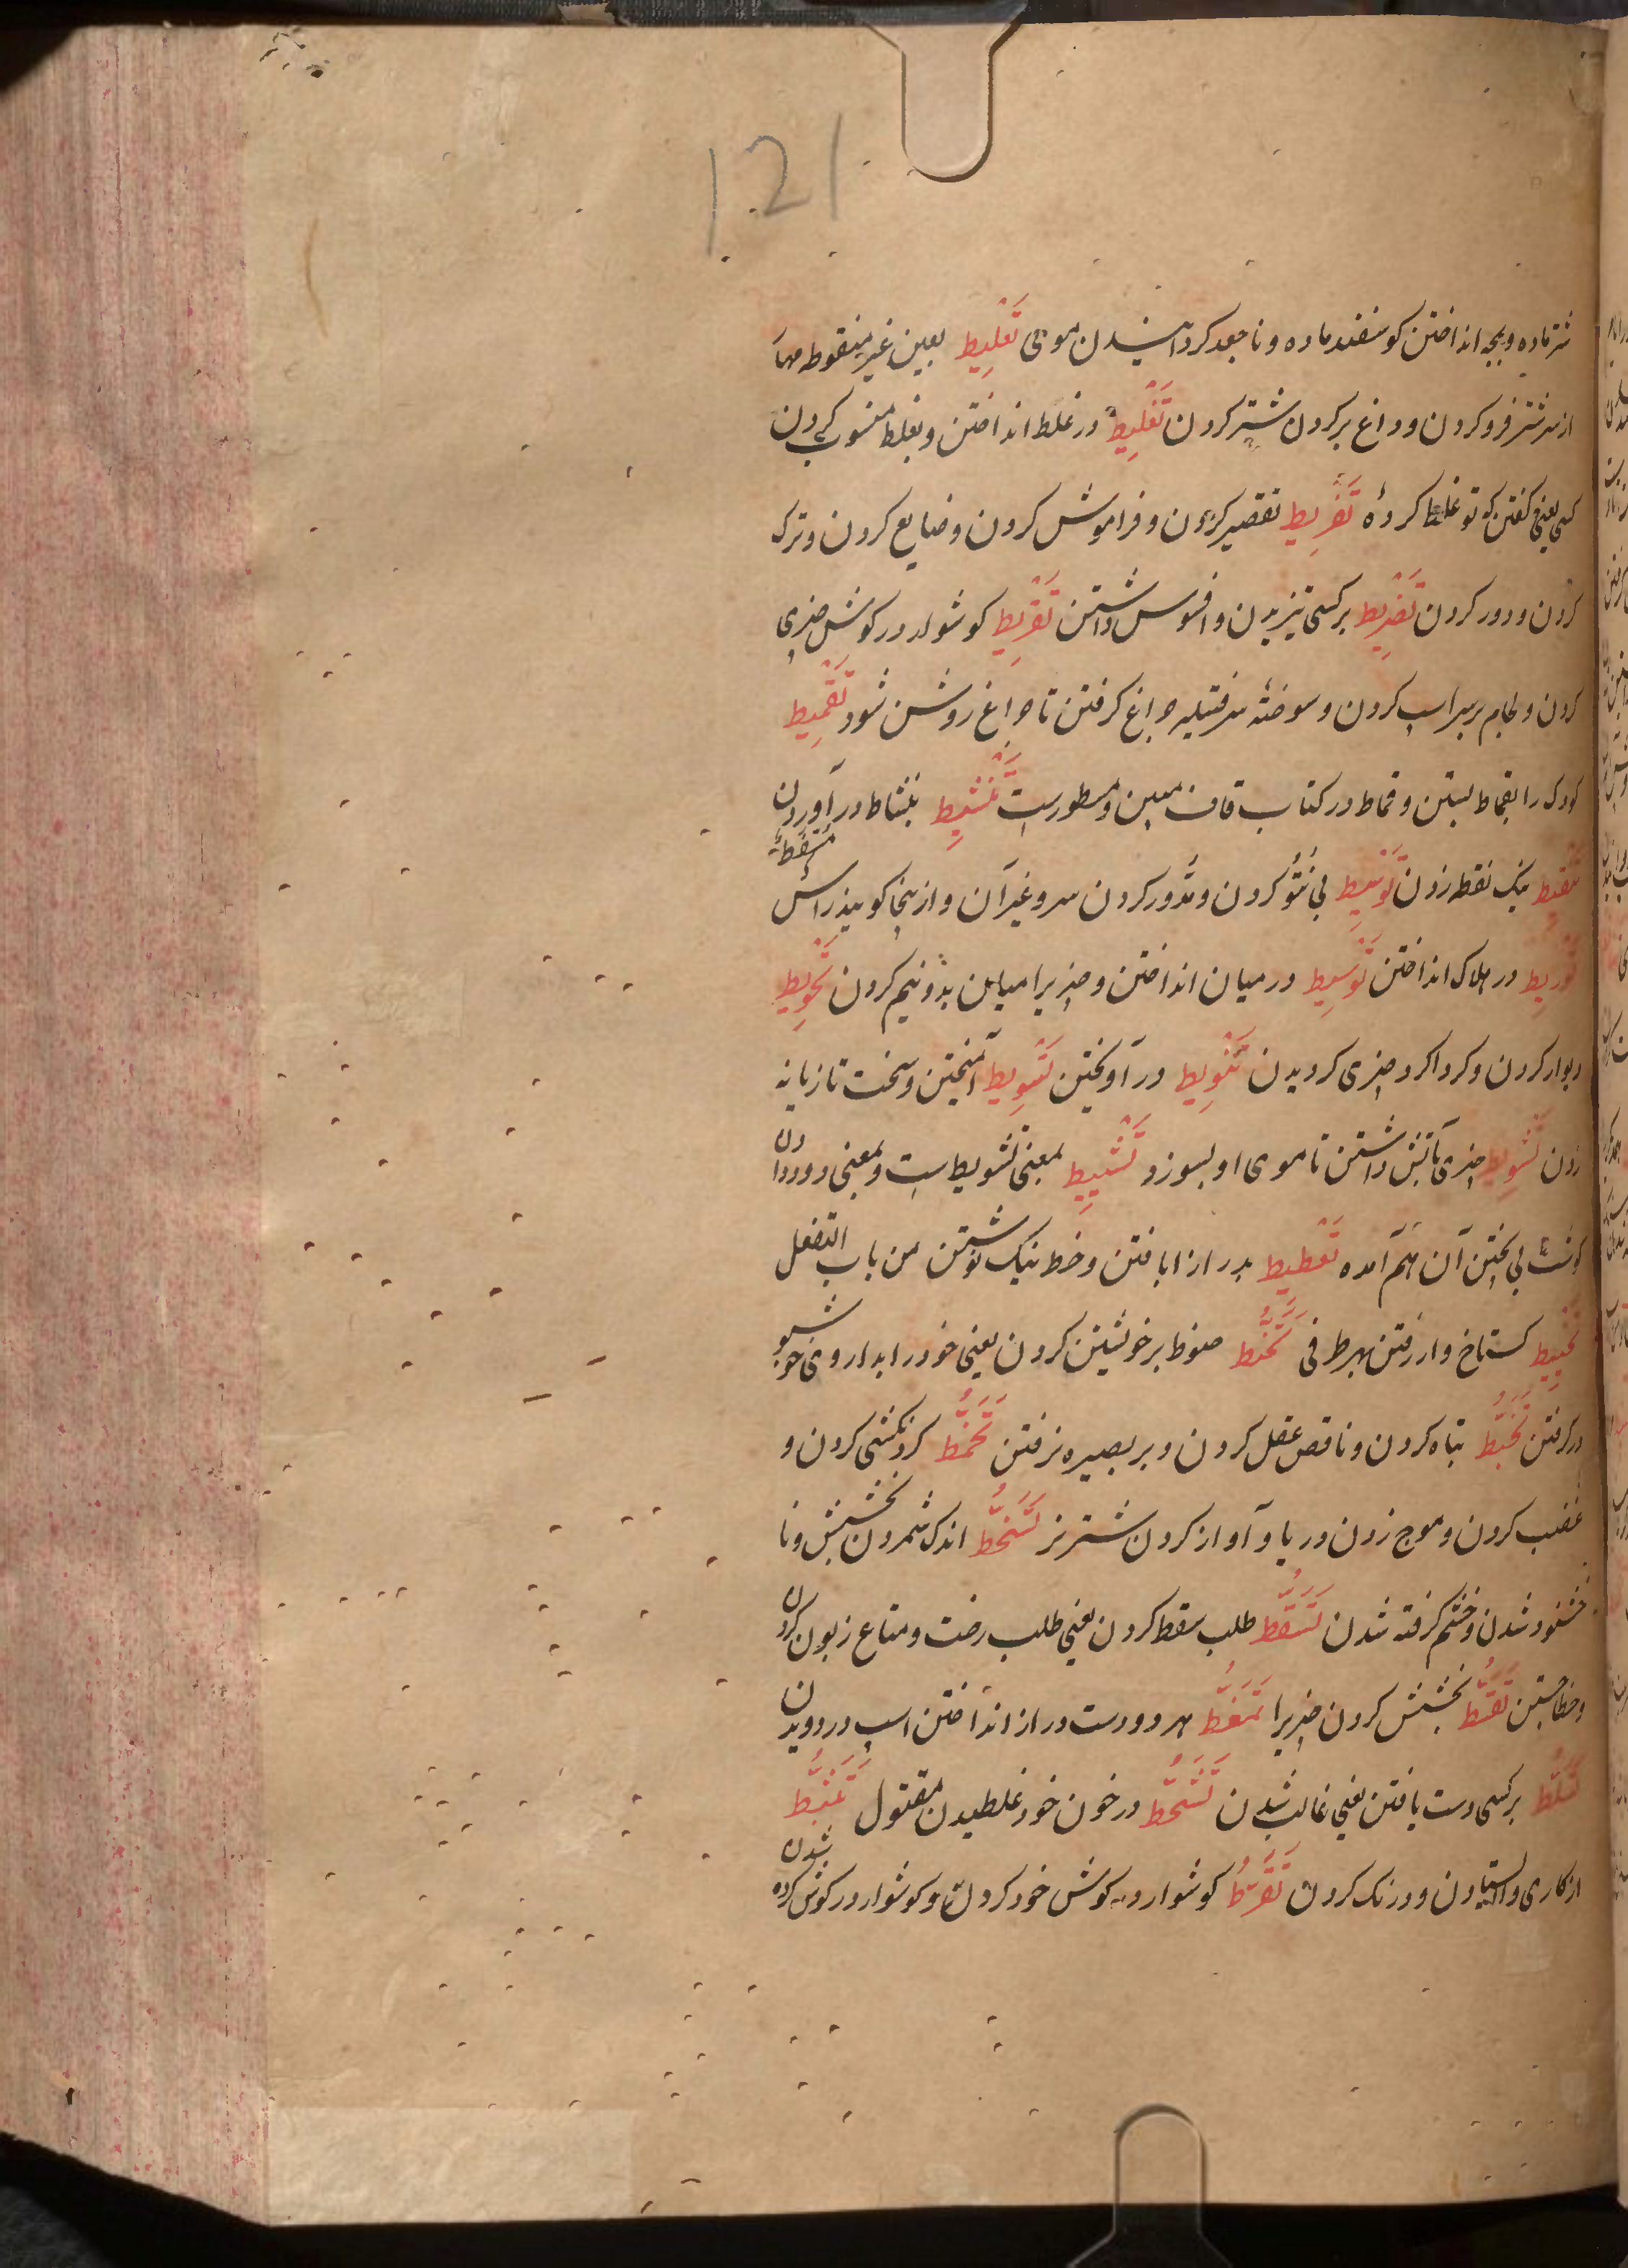 121
شتر ماده و بچه انداختن کوسفند ماده و نا جعد کردانیدن موی تَعْلِیط بعین غیر منقوطه مهار
از سر شتر فرو کردن و داغ بر کردن شتر کردن تَغْلِیط در غلط انداختن و بغلط منسوب کردن
کسی یعنی کفتن که تو غلط کردهٔ تَفْرِیط تقصیر کردن و فراموش کردن و ضایع کردن و ترک
کردن و دور کردن تَضْرِیط بر کسی تیزیدن و افسوس داشتن تَقْرِیط کوشوار در کوش چیزی
کردن و لجام بر سر اسپ کردن و سوخته سر فتیله چراغ کرفتن تا چراغ روشن شود تَقْمِیط
کودک را بقماط بستن و قماط در کتاب قاف مبین و مسطورست تَنْشِیط بنشاط در آوردن
تَنْقِیط نیک نقطه زدن بی نُتُوّ کردن و مدّور کردن سر و غیر آن و از ینجا کویند راس مُسَفَّطَة
تَوْرِیط در هلاک انداختن تَوْسِیط در میان انداختن و چیز یرا میان بدونیم کردن تَحْوِیط
دیوار کردن و کرداکرد چیزی کردیدن تَنْوِیط در آویختن تَسْوِیط آمیختن و سخت تازیانه
زدن تَشْوِیط چیزی بآتش داشتن تا موی او بسوزد تَشْیِیط بمعنی تشویط است و بمعنی دود دادن
کوشت بی پختن آن هم آمده تَعْطِیط بدرازا بافتن و خط نیک نوشتن من باب التفعل
کستاخ وار رفتن بهر طرفی تَحَنُّط حنوط بر خویشتن کردن یعنی خود را بداروی خوشبو
در کرفتن تَخَبُّط تباه کردن و ناقص عقل کردن و بر بصیره نرفتن تَخَمُّط کردنکشی کردن و
غضب کردن و موج زدن دریا و آواز کردن شتر نر تَسَخُّط اندک شمردن بخشش و نا
خشنود شدن و خشم کرفته شدن تَسَقُّط طلب سقط کردن یعنی طلب رخت و متاع زبون کردن
و خطا جستن تَقَسُّط بخشش کردن چیزیرا تَمَغُّط هر دو دست دراز انداختن اسپ در دویدن
تَسَلُّط بر کسی دست یافتن یعنی غالب شدن تَشَحُّط در خون خود غلطیدن مقتول تَثَبُّط
از کاری وا ایستادن و درنک کردن تَقَرُّط کوشوار در کوش خود کردن و کوشوار در کوش کرده شدن